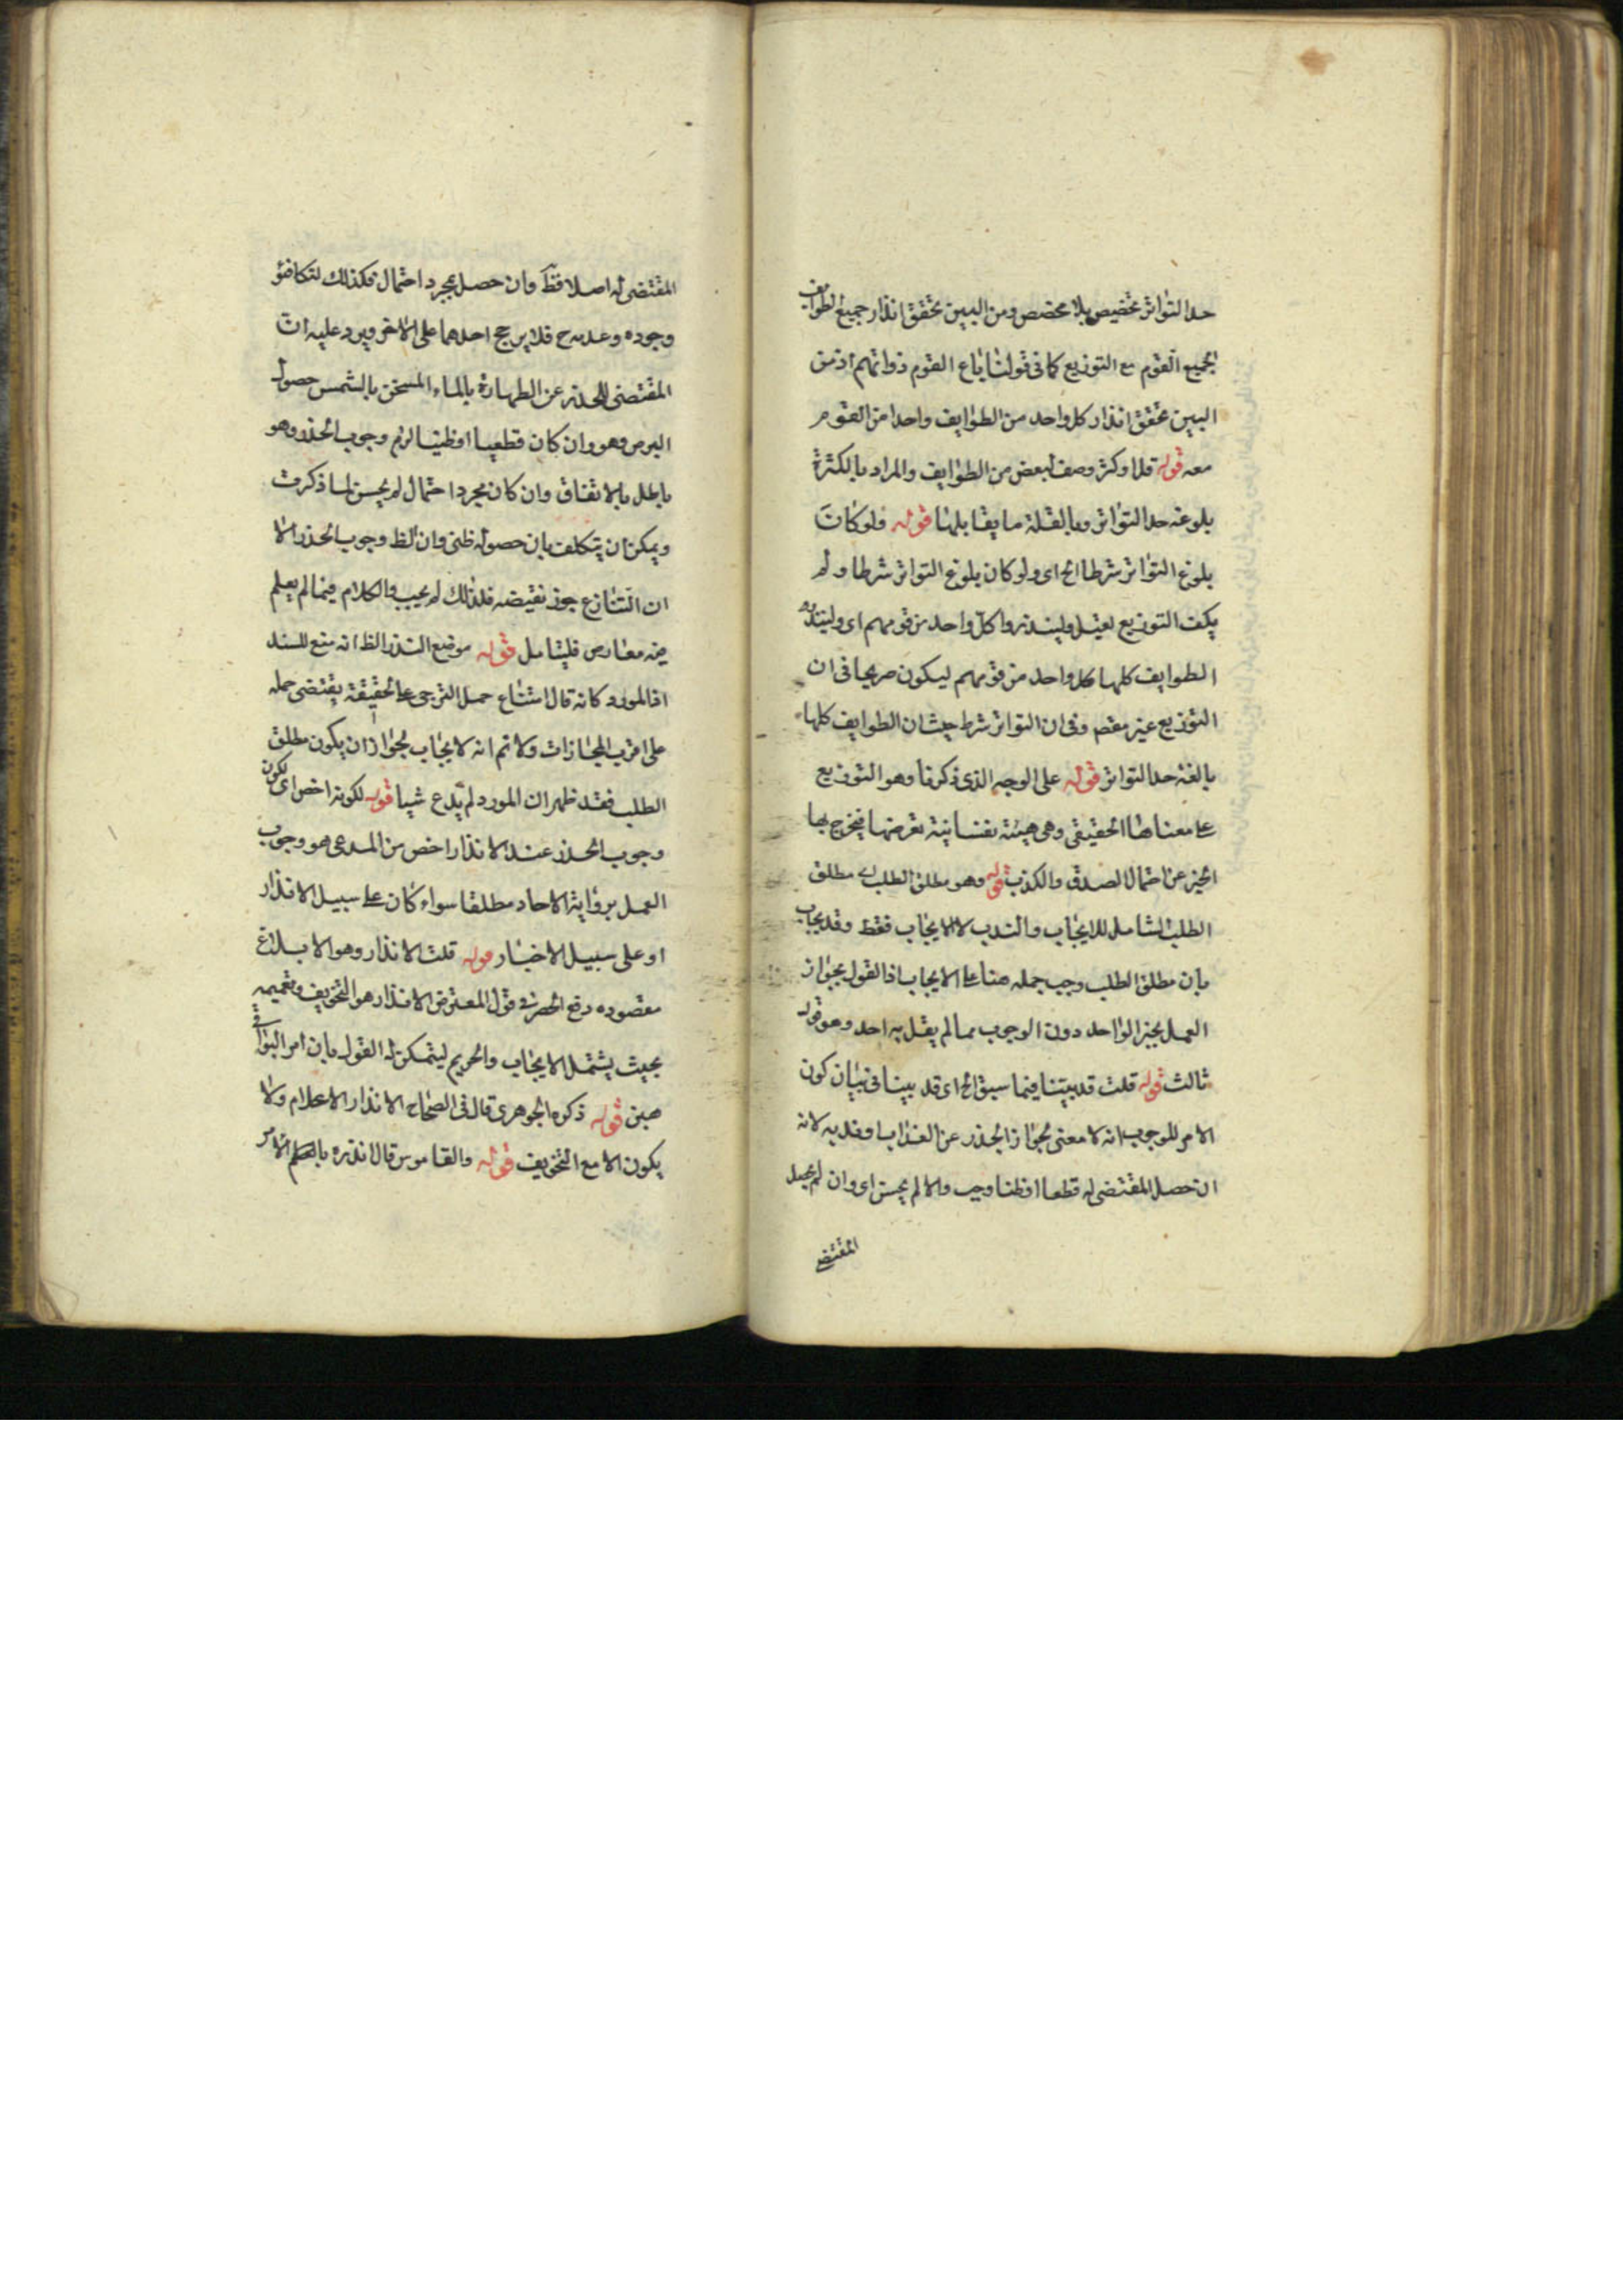 حد التواتر تخصيص بلا مخصص ومن البين تحقق انذار جميع الطوايف
لجميع القوم مع التوزيع كما في قولنا باع القوم دوابهم اذ من
البين تحقق انذار كل واحد من الطوايف واحدا من القوم
معه قوله قلة او كثرة وصف لبعض من الطوايف والمراد بالكثرة
بلوغه حد التواتر وبالقلة ما يقابلها قوله فلو كان
بلوغ التواتر شرطا الخ اي ولو كان بلوغ التواتر شرطا ولم
يكف التوزيع لقيل ولينذروا كل واحد من قومهم اي ولينذر
الطوايف كلها كل واحد من قومهم ليكون صريحا في ان
التوزيع غير مقصود وفي ان التواتر شرط حيث ان الطوايف كلها
بالغة حد التواتر قوله على الوجه الذي ذكرنا وهو التوزيع
على معناها الحقيقي وهي هيئة نفسانية
الخبر عن احتمال الصدق والكذب قوله وهو مطلق الطلب اي مطلق
الطلب الشامل للايجاب والندب لا الايجاب فقط وقد يجاب
بان مطلق الطلب وجب حمله هنا على الايجاب اذ القول بجواز
العمل بخبر الواحد دون الوجوب مما لم يقل به احد وهو قول
ثالث قوله قلت قد بينا فيما سبق الخ اي قد بينا في بيان كون
الامر للوجوب انه لا معنى لجواز الحذر عن العذاب او ندبه لانه
ان حصل المقتضى له قطعا او ظنا وجب والا لم يحسن اي وان لم يحصل
المقتضى
المقتضى له اصلا فظ وان حصل بمجرد احتمال فكذلك لتكافؤ
وجوده وعدمه ح فلا يرجح احدهما على الاخر ويرد عليه ان
المقتضى للحذر عن الطهارة بالماء المسخن بالشمس حصول
البرص وهو وان كان قطعيا او ظنيا لزم وجوب الحذر وهو
باطل بالاتفاق وان كان مجرد احتمال لم يحسن لما ذكرت
ويمكن ان يتكلف بان حصوله ظني وان الظ وجوب الحذر الا
ان الشارع جوز نقيضه فلذلك لم يجب والكلام فيما لم يعلم
فيه معارض فليتامل قوله موضع التدبر الظ انه منع للسند
افاد المورد كانه قال امتناع حمل الترجي على الحقيقة يقتضي حمله
على اقرب المجازات ولا نم انه لايجاب لجواز ان يكون مطلق
الطلب فقد ظهر ان المورد لم يدع شيا قوله لكونه اخص اي لكون
وجوب الحذر عند الانذار اخص من المدعى هو وجوب
العمل برواية الاحاد مطلقا سواء كان على سبيل الانذار
او على سبيل الاخبار قوله قلت الانذار وهو الابلاغ
مقصوده دفع الحصر في قول المعترض الانذار هو التخويف وتعميمه
بحيث يشتمل الايجاب والتحريم ليتمكن له القول بان امر البواقي
هين قوله ذكره الجوهري قال في الصحاح الانذار الاعلام ولا
يكون الا مع التخويف قوله والقاموس قال انذره بالامر